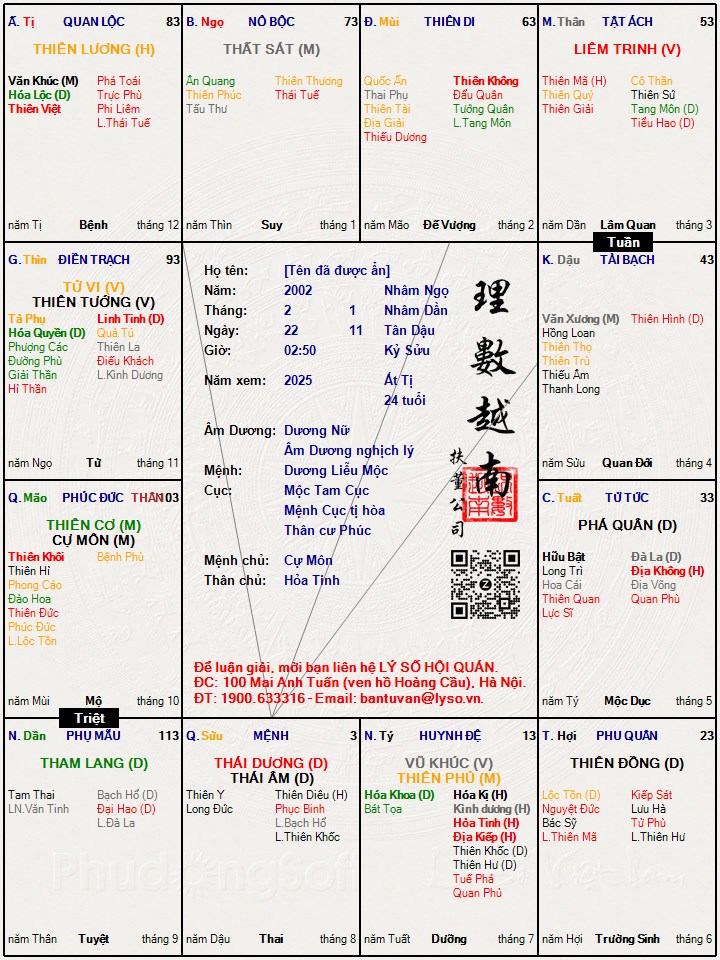 Ấ. Tị QUAN LỘC 83
THIÊN LƯƠNG (H)
Văn Khúc (M) Phá Toái
Hóa Lộc (D) Trực Phù
Thiên Việt Phi Liêm
L.Thái Tuế
năm Tị Bệnh tháng 12
B. Ngọ NÔ BỘC 73
THẤT SÁT (M)
Ân Quang Thiên Thương
Thiên Phúc Thái Tuế
Tấu Thư
năm Thìn Suy tháng 1
Đ. Mùi THIÊN DI 63
Quốc Ấn Thiên Không
Thai Phụ Đẩu Quân
Thiên Tài Tướng Quân
Địa Giải L.Tang Môn
Thiếu Dương
năm Mão Đế Vượng tháng 2
M. Thân TẬT ÁCH 53
LIÊM TRINH (V)
Thiên Mã (H) Cô Thần
Thiên Quý Thiên Sứ
Thiên Giải Tang Môn (D)
Tiểu Hao (D)
năm Dần Lâm Quan tháng 3
Tuần
G. Thìn ĐIỀN TRẠCH 93
TỬ VI (V)
THIÊN TƯỚNG (V)
Tả Phụ Linh Tinh (D)
Hóa Quyền (D) Quả Tú
Phượng Các Thiên La
Đường Phù Điếu Khách
Giải Thần L.Kình Dương
Hỉ Thần
năm Ngọ Tử tháng 11
Họ tên: [Tên đã được ẩn]
Năm: 2002 Nhâm Ngọ
Tháng: 2 1 Nhâm Dần
Ngày: 22 11 Tân Dậu
Giờ: 02:50 Kỷ Sửu
Năm xem: 2025 Ất Tị
24 tuổi
Âm Dương: Dương Nữ
Âm Dương nghịch lý
Mệnh: Dương Liễu Mộc
Cục: Mộc Tam Cục
Mệnh Cục tị hòa
Thân cư Phúc
Mệnh chủ: Cự Môn
Thân chủ: Hỏa Tinh
理數越南
扶董公司
Để luận giải, mời bạn liên hệ LÝ SỐ HỘI QUÁN.
ĐC: 100 Mai Anh Tuấn (ven hồ Hoàng Cầu), Hà Nội.
ĐT: 1900.633316 - Email: bantuvan@lyso.vn.
K. Dậu TÀI BẠCH 43
Văn Xương (M) Thiên Hình (D)
Hồng Loan
Thiên Thọ
Thiên Trù
Thiếu Âm
Thanh Long
năm Sửu Quan Đới tháng 4
Q. Mão PHÚC ĐỨC THÂN 103
THIÊN CƠ (M)
CỰ MÔN (M)
Thiên Khôi Bệnh Phù
Thiên Hỉ
Phong Cáo
Đào Hoa
Thiên Đức
Phúc Đức
L.Lộc Tồn
năm Mùi Mộ tháng 10
Triệt
C. Tuất TỬ TỨC 33
PHÁ QUÂN (D)
Hữu Bật Đà La (D)
Long Trì Địa Không (H)
Hoa Cái Địa Võng
Thiên Quan Quan Phù
Lực Sĩ
năm Tý Mộc Dục tháng 5
N. Dần PHỤ MẪU 113
THAM LANG (D)
Tam Thai Bạch Hổ (D)
LN.Văn Tinh Đại Hao (D)
L.Đà La
năm Thân Tuyệt tháng 9
Q. Sửu MỆNH 3
THÁI DƯƠNG (D)
THÁI ÂM (D)
Thiên Y Thiên Diêu (H)
Long Đức Phục Binh
L.Bạch Hổ
L.Thiên Khốc
năm Dậu Thai tháng 8
N. Tý HUYNH ĐỆ 13
VŨ KHÚC (V)
THIÊN PHỦ (M)
Hóa Khoa (D) Hóa Kị (H)
Bát Tọa Kình dương (H)
Hỏa Tinh (H)
Địa Kiếp (H)
Thiên Khốc (D)
Thiên Hư (D)
Tuế Phá
Quan Phủ
năm Tuất Dưỡng tháng 7
T. Hợi PHU QUÂN 23
THIÊN ĐỒNG (D)
Lộc Tồn (D) Kiếp Sát
Nguyệt Đức Lưu Hà
Bác Sỹ Tử Phù
L.Thiên Mã L.Thiên Hư
năm Hợi Trường Sinh tháng 6